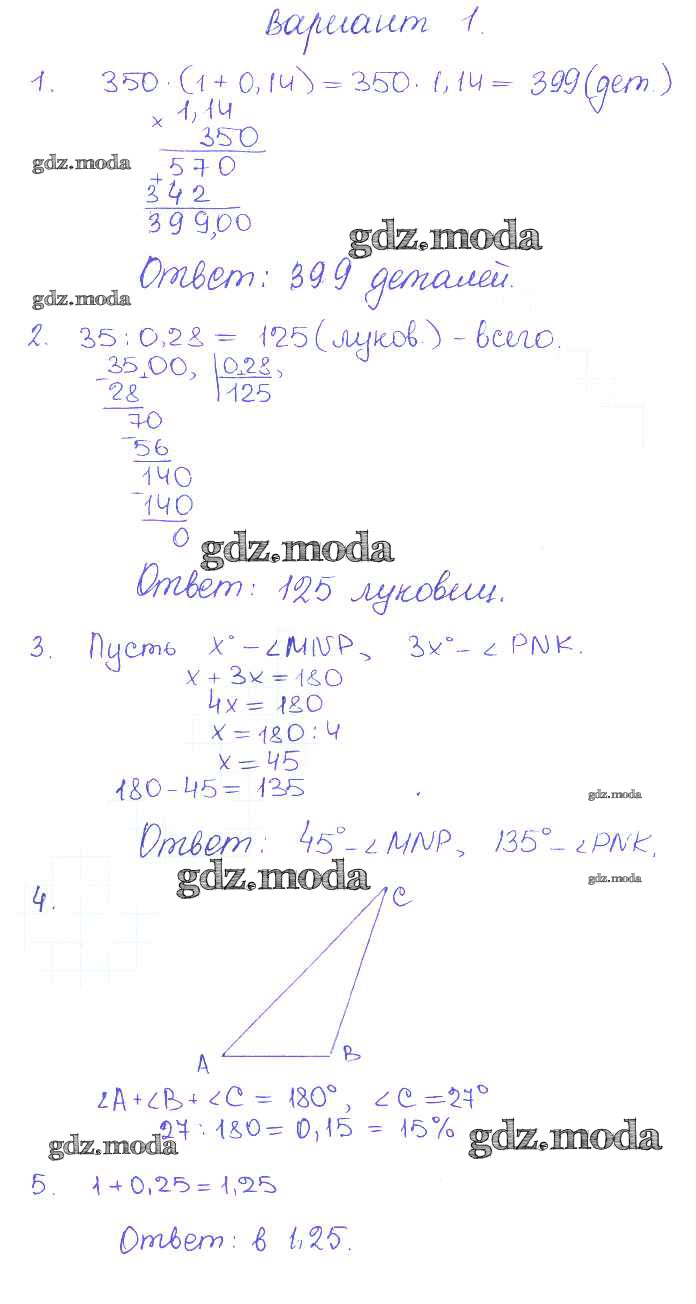 Вариант 1.
1. 350·(1+0,14)=350·1,14= 399(дет.)
× 1,14
350
gdz.moda
+ 570
342
399,00
gdz.moda
Ответ: 399 деталей.
gdz.moda
2. 35:0,28 = 125(луков.)-всего.
35,00, 0,28,
- 28 125
70
- 56
140
- 140
0
gdz.moda
Ответ: 125 луковиц.
3. Пусть x°-∠MNP, 3x°-∠PNK.
x+3x=180
4x=180
x=180:4
x=45
180-45=135
gdz.moda
Ответ: 45°-∠MNP, 135°-∠PNK,
gdz.moda
gdz.moda
4.
C
A B
∠A+∠B+∠C = 180°, ∠C=27°
27:180=0,15 = 15%
gdz.moda
gdz.moda
5. 1+0,25=1,25
Ответ: в 1,25.